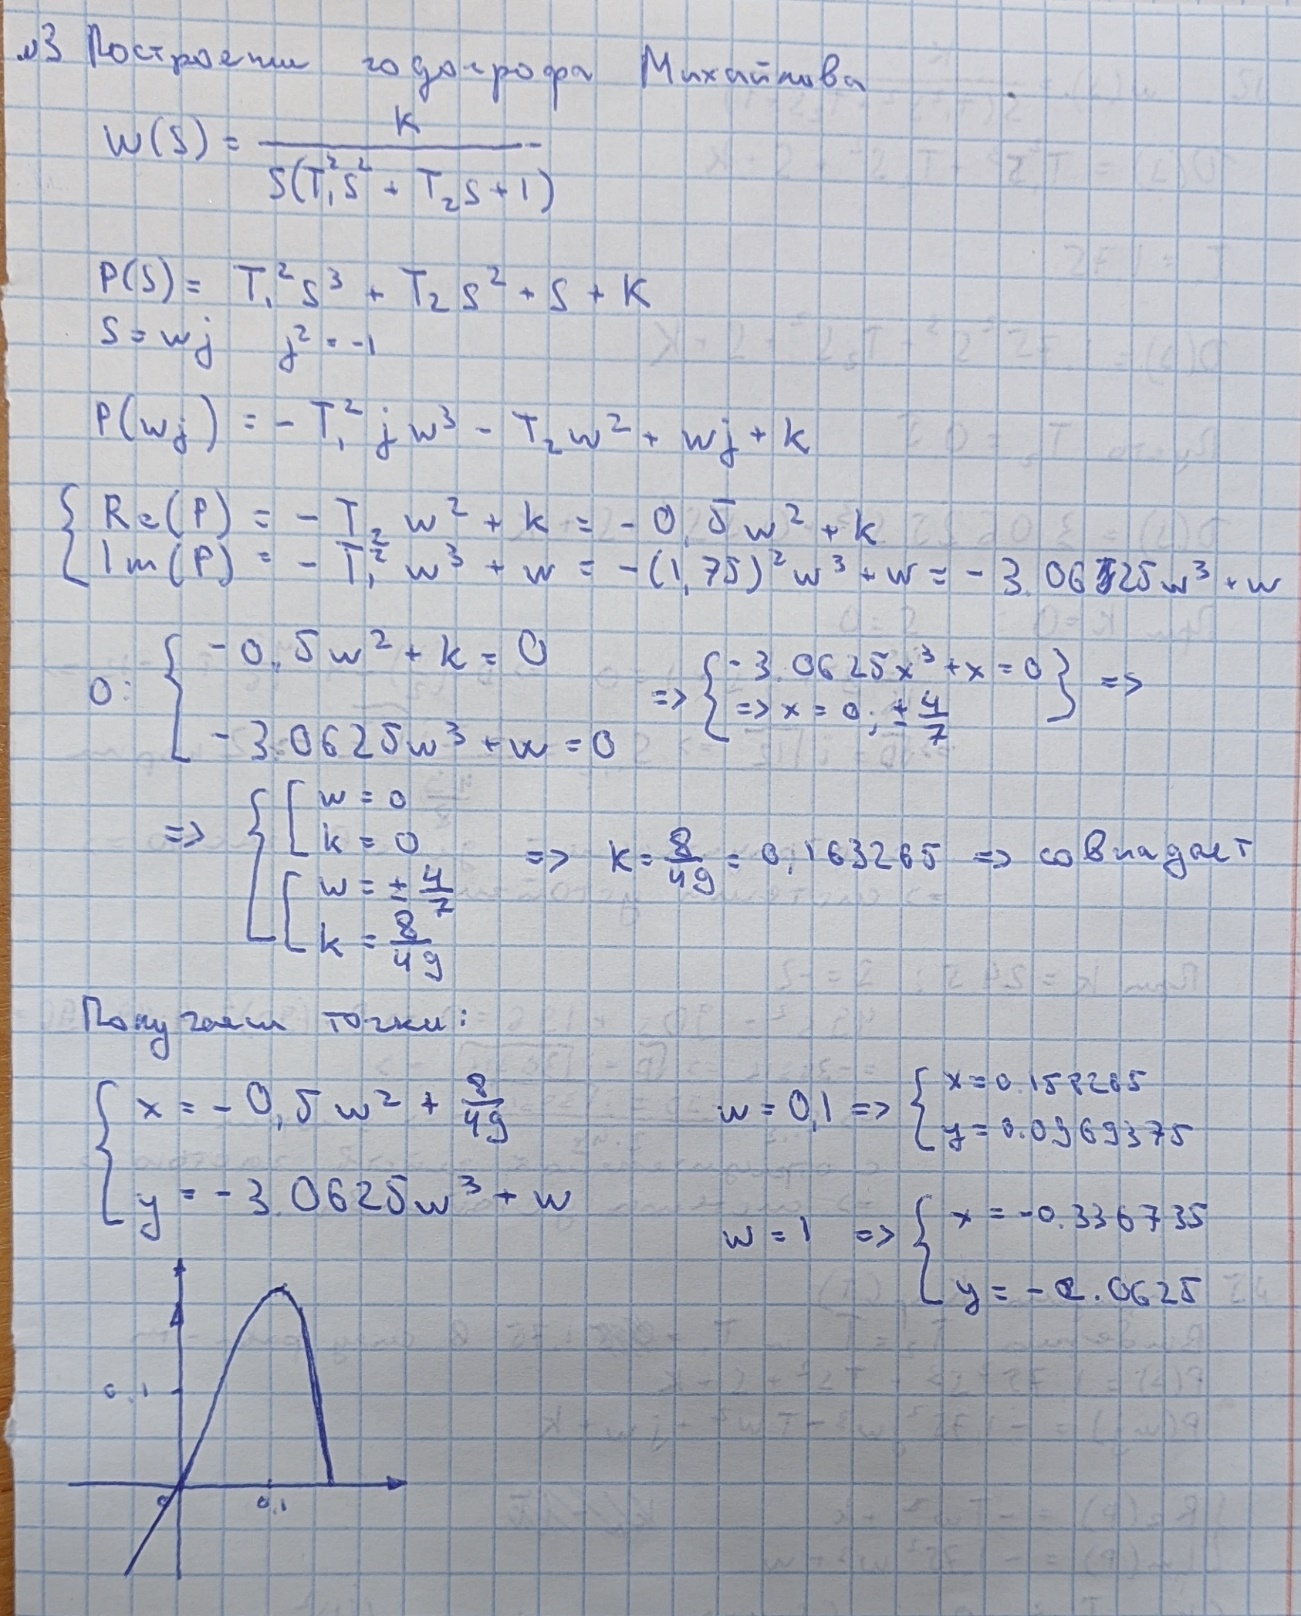 №3 Построение годографа Михайлова
W(S) = K / S(T₁²S² + T₂S + 1)
P(S) = T₁²S³ + T₂S² + S + K
S = wj j² = -1
P(wj) = - T₁²jw³ - T₂w² + wj + k
{ Re(P) = - T₂w² + k = - 0,5w² + k
Im(P) = - T₁²w³ + w = -(1,75)²w³ + w = - 3.0625w³ + w
0: { -0,5w² + k = 0
-3.0625w³ + w = 0
=> { -3.0625x³ + x = 0
=> x = 0; ± 4/7 } =>
=> { [ w = 0
k = 0
[ w = ± 4/7
k = 8/49
=> k = 8/49 = 0,163265 => совпадает
Получаем точки:
{ x = - 0,5w² + 8/49
y = - 3.0625w³ + w
w = 0,1 => { x = 0.158265
y = 0.0969375
w = 1 => { x = -0.336735
y = -2.0625
0,1
0
0,1